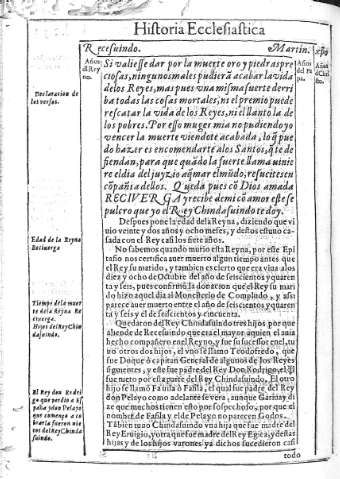 Historia Ecclesiastica
Recesuindo. Martin. xpo
Años del Rey no.
Años del Pa pa.
Años d Chri sto.
Si valiesse dar por la muerte oro y piedras pre
ciosas, ningunos males pudierã acabar la vida
de los Reyes, mas pues vna misma suerte derri
ba todas las cosas mortales, ni el premio puede
rescatar la vida de los Reyes, ni el llanto la de
los pobres. Por esso muger mia no pudiendo yo
vencer la muerte viendote acabada, lo q̃ pue
do hazer es encomendarte a los Santos, q̃ te de
fiendan, para que quãdo la fuerte llama vinie
re el dia del juyzio a q̃mar el mũdo, resucites en
cõpañia dellos. Queda pues cõ Dios amada
RECIVERGA y recibe de mi cõ amor este se
pulcro que yo el Rey Chindasuindo te doy.
Declaracion de los versos.
Despues pone la edad de la Reyna, diziendo que vi
uio veinte y dos años y ocho meses, y destos estuuo ca
sada con el Rey casi los siete años.
Edad de la Reyna Reciuerga
No sabemos quando murio esta Reyna, por este Epi
tafio nos certifica auer muerto algun tiempo antes que
el Rey su marido, y tambien es cierto que era viua a los
diez y ocho de Octubre del año de seiscientos y quaren
ta y seis, pues confirmó la donacion que el Rey su mari
do hizo aquel dia al Monesterio de Compludo, y assi
parece auer muerto entre el año de seiscientos y quaren
ta y seis y el de seiscientos y cincuenta.
Tiempo de la muer te de la Reyna Re ciuerga.
Hijos del Rey Chin dasuindo.
Quedaron del Rey Chindasuindo tres hijos por que
aliende de Recesuindo que era el mayor aquien el auia
hecho compañero en el Reyno, y fue su sucessor en el, tu
uo otros dos hijos, el vno se llamo Teodofredo, que
fue Duque o capitan General de algunos de los Reyes
siguientes, y este fue padre del Rey Don Rodrigo, el q̃l
fue nieto por esta parte del Rey Chindasuindo. El otro
hijo se llamó Fauila ò Fafila, el qual fue padre del Rey
don Pelayo como adelante se vera, aunque Garibay di
ze que muchos tienen esto por sospechoso, por que el
nombre de Fafila y el de Pelayo no parecen Godos.
El Rey don Rodri go que perdio a Es paña y don Pelayo que començo a co brarla fueron nie tos del Rey Chinda suindo.
Tãbien tuuo Chindasuindo vna hija que fue madre
del Rey Eruigio, y otra que fue madre del Rey Egica; y destas
hijas y de los hijos varones ya dichos sucedieron casi
todo